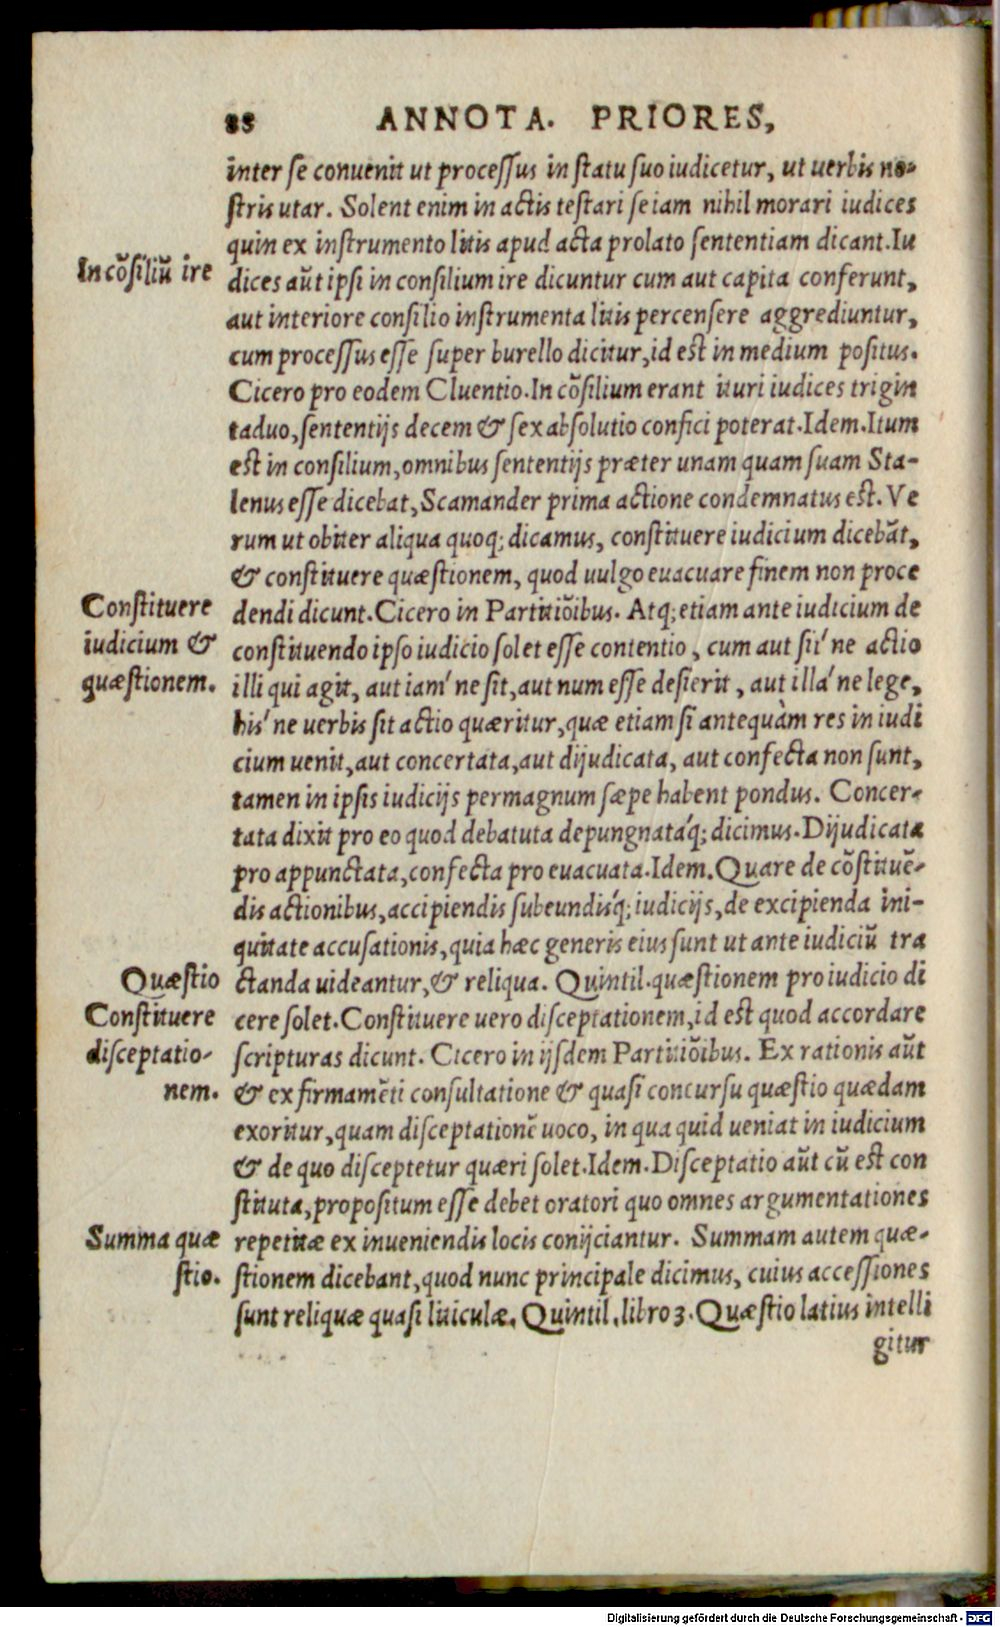 88 ANNOTA. PRIORES,
inter se convenit ut processus in statu suo iudicetur, ut verbis no-
stris utar. Solent enim in actis testari se iam nihil morari iudices
quin ex instrumento litis apud acta prolato sententiam dicant. Iu
In cõsiliũ ire
dices aũt ipsi in consilium ire dicuntur cum aut capita conferunt,
aut interiore consilio instrumenta litis percensere aggrediuntur,
cum processus esse super burello dicitur, id est in medium positus.
Cicero pro eodem Cluentio. In cõsilium erant ituri iudices trigin
taduo, sententijs decem & sex absolutio confici poterat. Idem. Itum
est in consilium, omnibus sententijs præter unam quam suam Sta-
lenus esse dicebat, Scamander prima actione condemnatus est. Ve
rum ut obiter aliqua quoq; dicamus, constituere iudicium dicebãt,
& constituere quæstionem, quod uulgo euacuare finem non proce
Constituere
iudicium &
quæstionem.
dendi dicunt. Cicero in Partitiõibus. Atq; etiam ante iudicium de
constituendo ipso iudicio solet esse contentio, cum aut sit´ne actio
illi qui agit, aut iam´ne sit, aut num esse desierit, aut illa´ne lege,
his´ne uerbis sit actio quæritur, quæ etiam si antequàm res in iudi
cium uenit, aut concertata, aut dijudicata, aut confecta non sunt,
tamen in ipsis iudicijs permagnum sæpe habent pondus. Concer-
tata dixit pro eo quod debatuta depungnatáq; dicimus. Dijudicata
pro appunctata, confecta pro euacuata. Idem. Quare de cõstituẽ-
dis actionibus, accipiendis subeundisq́; iudicijs, de excipienda ini-
quitate accusationis, quia hæc generis eius sunt ut ante iudiciũ tra
Quæstio
Constituere
disceptatio-
nem.
ctanda uideantur, & reliqua. Quintil. quæstionem pro iudicio di
cere solet. Constituere uero disceptationem, id est quod accordare
scripturas dicunt. Cicero in ijsdem Partitiõibus. Ex rationis aũt
& ex firmamẽti consultatione & quasi concursu quæstio quædam
exoritur, quam disceptationẽ uoco, in qua quid ueniat in iudicium
& de quo disceptetur quæri solet. Idem. Disceptatio aũt cũ est con
stituta, propositum esse debet oratori quo omnes argumentationes
Summa quæ
stio.
repetitæ ex inueniendis locis conijciantur. Summam autem quæ-
stionem dicebant, quod nunc principale dicimus, cuius accessiones
sunt reliquæ quasi liticulæ. Quintil. libro 3. Quæstio latius intelli
gitur
Digitalisierung gefördert durch die Deutsche Forschungsgemeinschaft - DFG